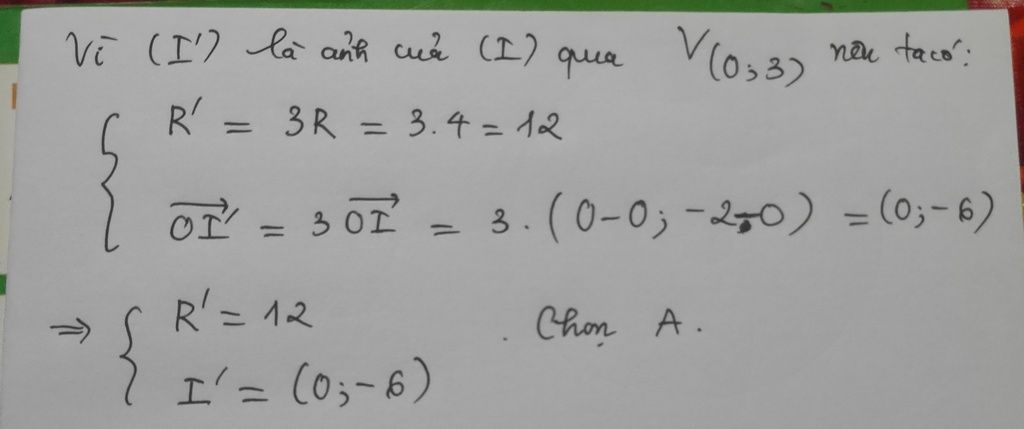 Vì (I') là ảnh của (I) qua V(0;3) nên ta có:
R' = 3R = 3.4 = 12
OI' = 3 OI = 3.(0-0; -2-0) = (0;-6)
⇒ { R' = 12 . Chọn A.
I' = (0;-6)